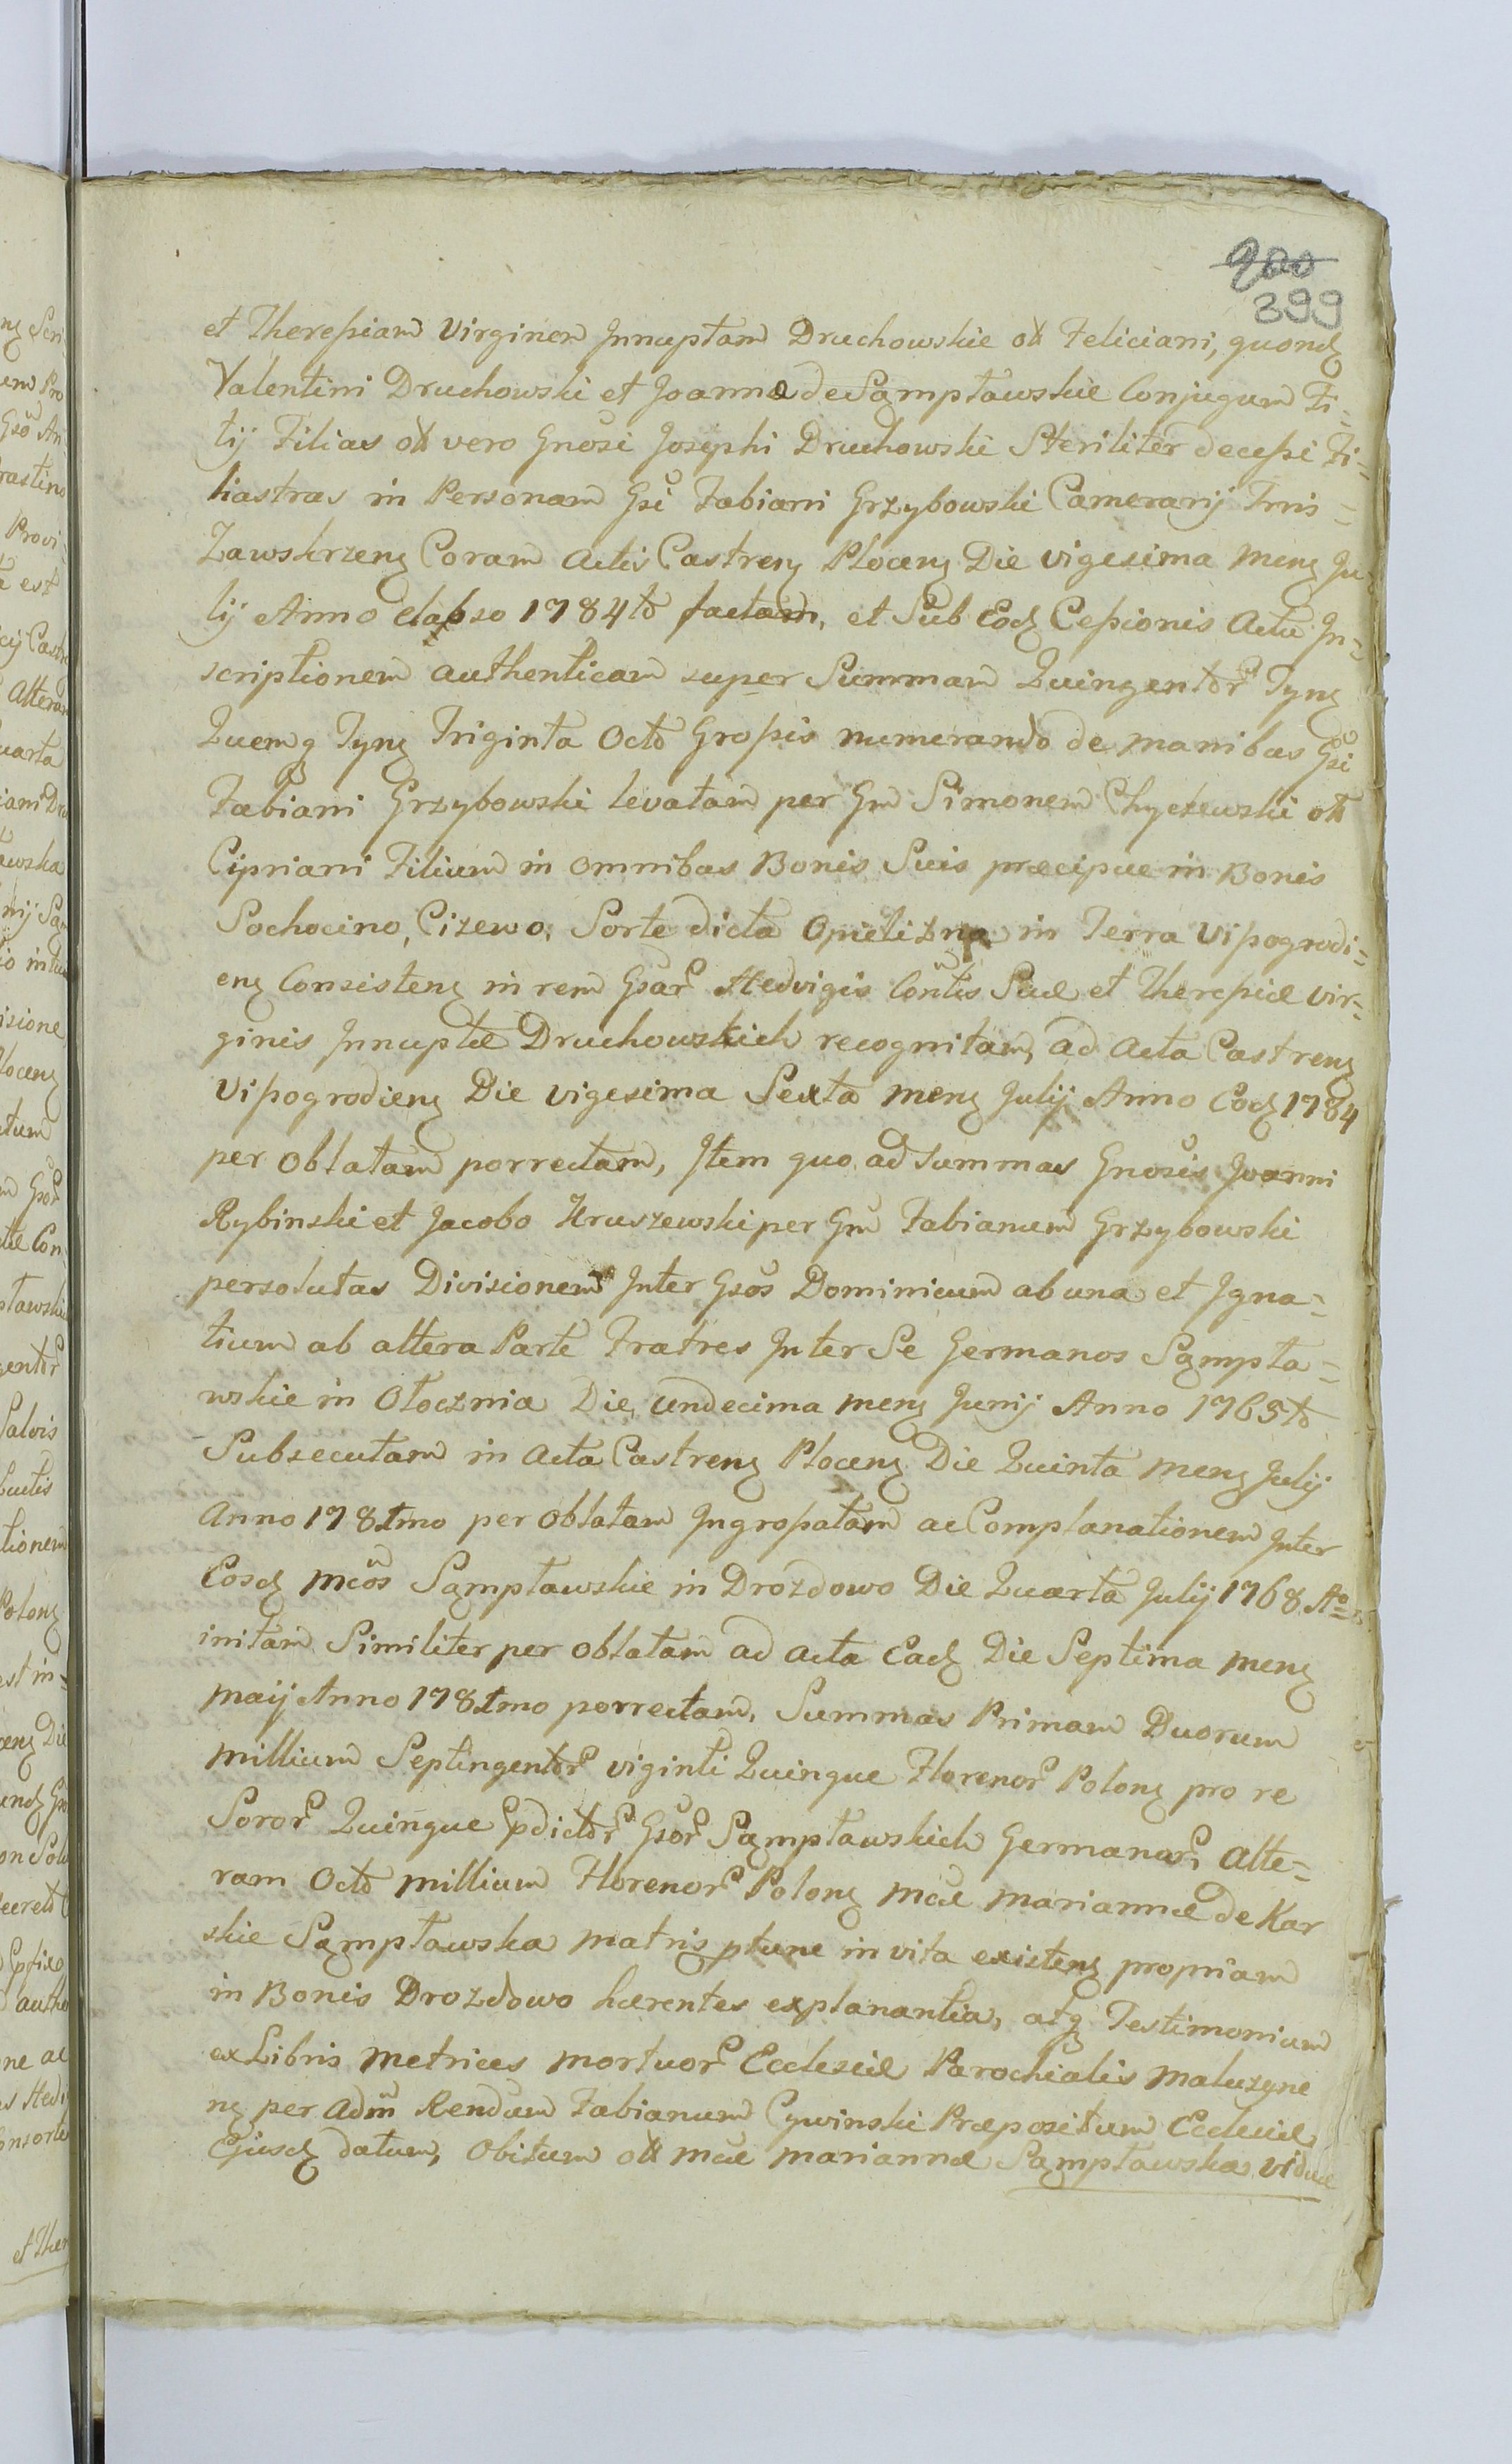 900
399
et Theressiam Virginem Innuptam Druchowskie olĩ Feliciani, quondȝ
Valentini Druchowski et Joannæ de Sąmpławskie Conjugum Fi=
lij Filias olĩ vero Gnosi Josephi Druchowski Steriliter decessi Fi=
liastras in Personam Gsi Fabiani Grzybowski Camerarij Trris=
Zawskrzenȝ Coram Actis Castrenȝ Płocenȝ Die vigesima Menȝ Ju
lij Anno elapso 1784to factam, et Sub Eodȝ Cessionis Actu In=
scriptionem authenticam super Summam Quingentor Tynȝ
Quemqȝ Tynȝ Triginta Octo Grossis numerando de manibus Gsi
Fabiani Grzybowski levatam per Gm Simonem Chyczewski olĩ
Cipriani Filium in omnibus Bonis Suis præcipue in Bonis
Sochocino, Cizewo, Sorte dicta Opielizna in Terra Vissogrodi=
enȝ Consistenȝ in rem Gsar Hedvigis Contis Suæ et Theressiæ vir=
ginis Innuptæ Druchowskich recognitam, ad Acta Castrenȝ
Vissogrodienȝ Die vigesima Sexta Menȝ Julij Anno Eodȝ 1784
per oblatam porrectam, Item quo ad Summas Gnosis Joanni
Rybinski et Jacobo Kruszewski per Gm Fabianum Grzybowski
persolutas Divisionem Inter Gsos Dominicum ab una et Igna=
tium ab altera Parte Fratres Inter Se Germanos Sąmpła=
wskie in Otocznia Die undecima Menȝ Junij Anno 1765to
Subsecutam in Acta Castrenȝ Płocenȝ Die Quinta Menȝ Julij
Anno 1781mo per oblatam Ingrossatam ac Complanationem Inter
Eosdȝ Mcos Sąmpławskie in Drozdowo Die Quarta Julij 1768 Ao
initam Similiter per oblatam ad Acta Eadȝ Die Septima Menȝ
Maij Anno 1781mo porrectam, Summas Primam Duorum
Millium Septingentor viginti Quinque Florenor Polonȝ pro re
Soror Quinque Pdictor Gsor Sąmpławskich Germanar, Alte=
ram Octo Millium Florenor Polonȝ Mcæ Mariannæ de Kar
skie Sąmpławska Matris ptunc in vita existenȝ propriam
in Bonis Drozdowo hærentes explanantia, atqȝ Testimonium
ex Libris Metrices Mortuor Ecclesiæ Parochialis Maluzyne
nȝ per Adm Rendum Fabianum Cywinski Præpositum Ecclesiæ
Ejusdȝ datum, Obitum olĩ Mcæ Mariannæ Sąmpławska viduæ